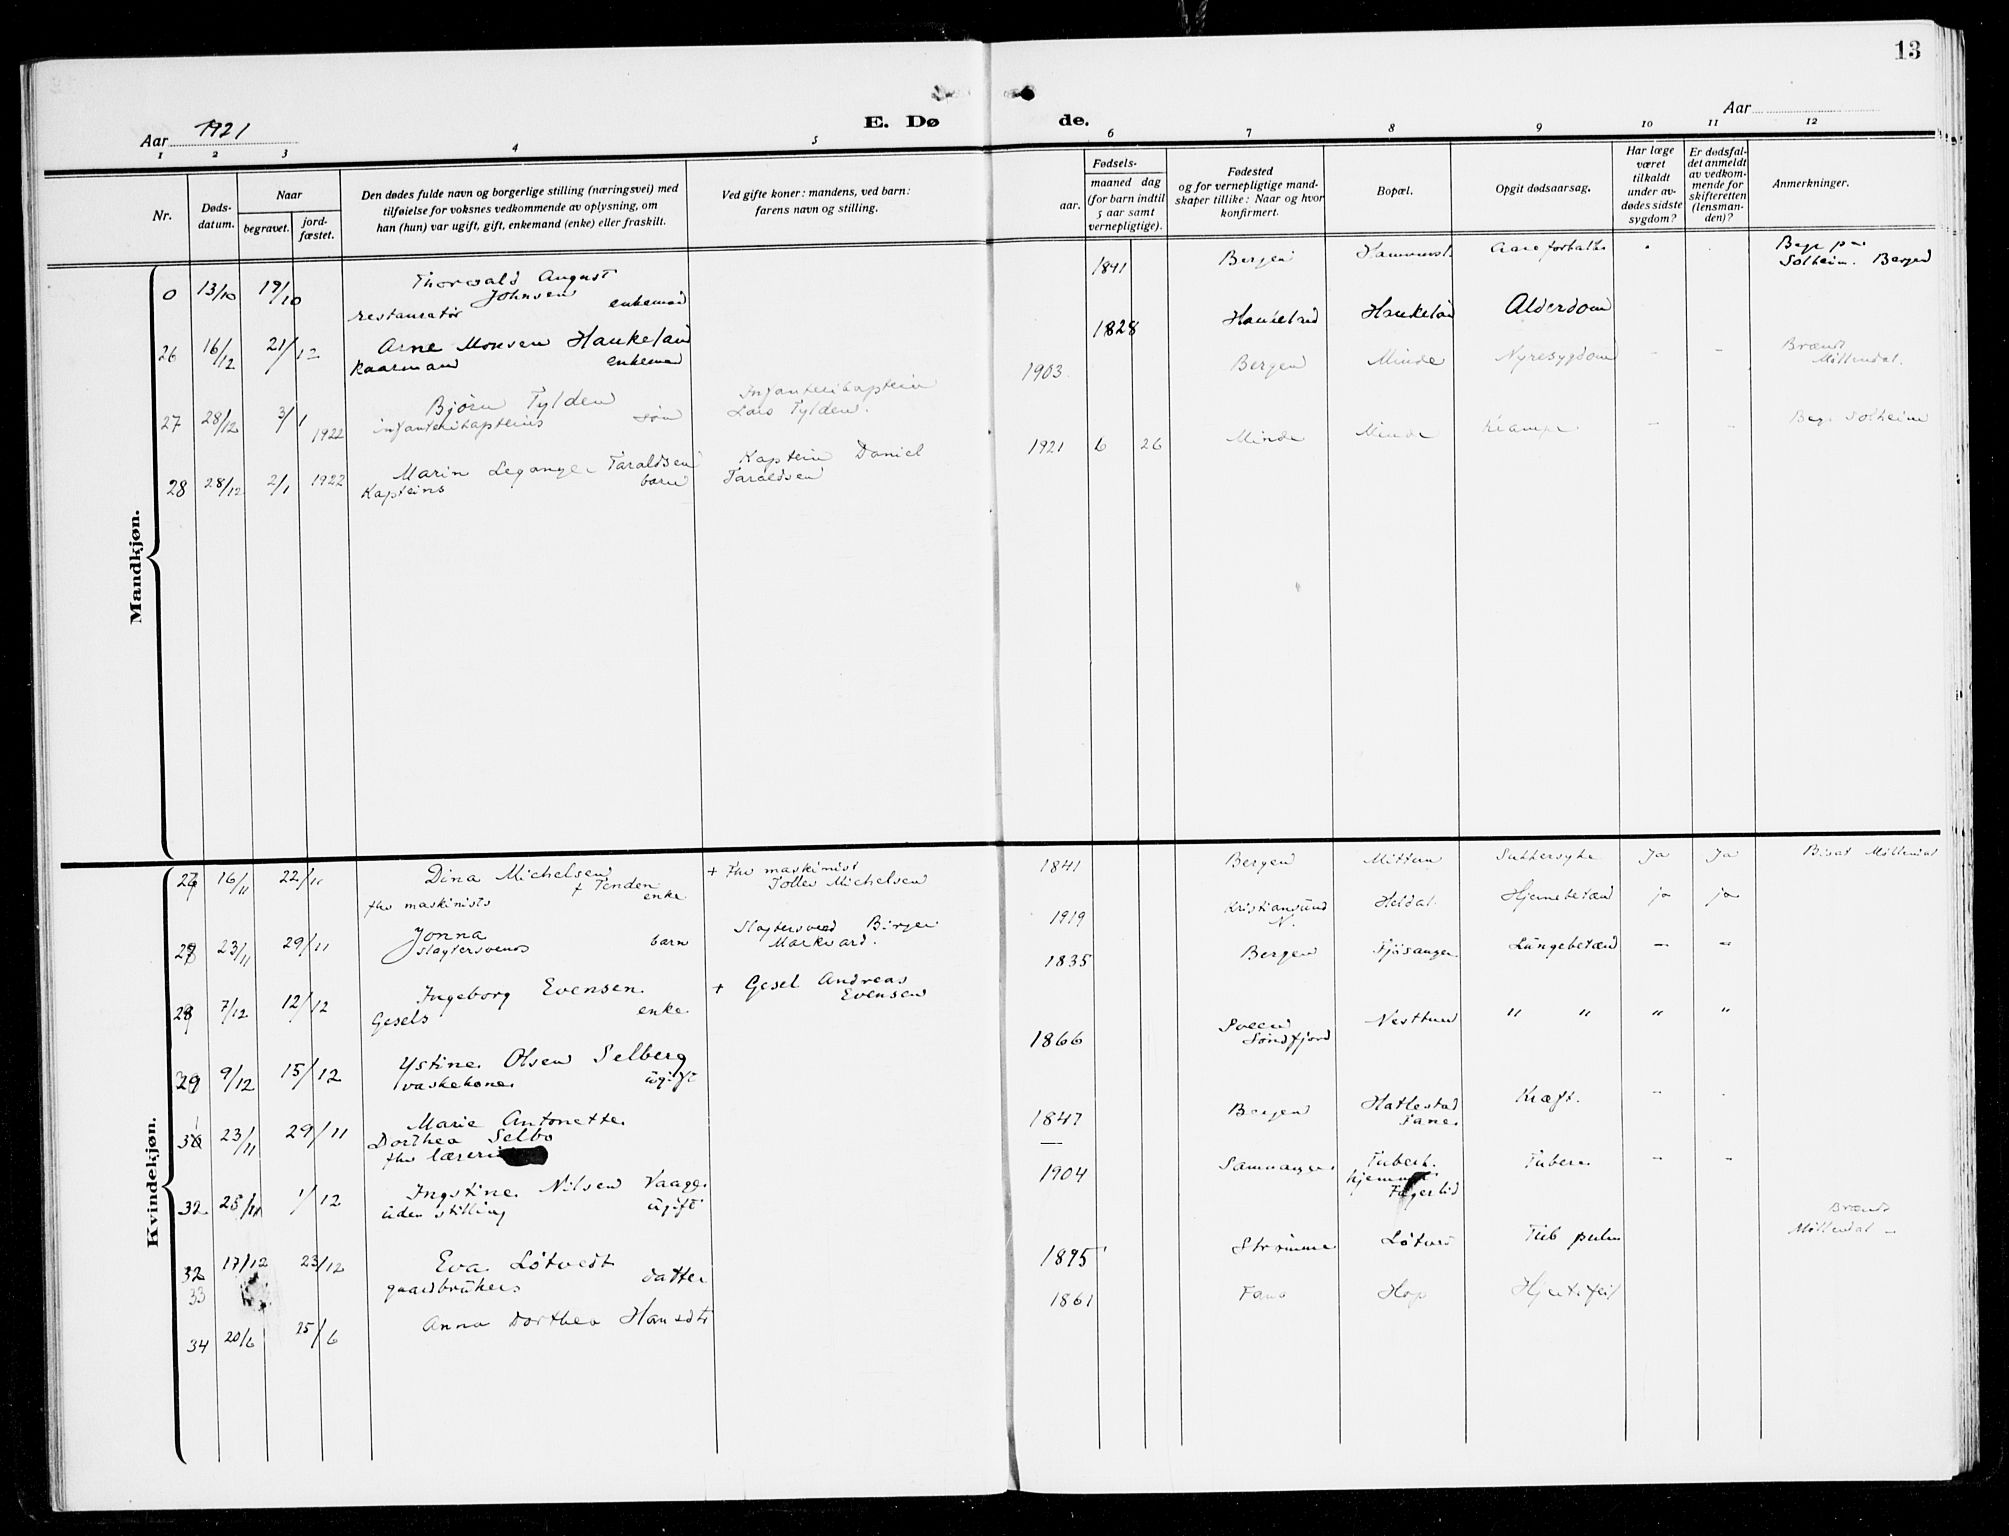 13
Aar 1921
E. Dø
de.
Aar
1 2 3 4 5 6 7 8 9 10 11 12
Nr.
Døds-
datum.
Naar
begravet.
jord-
fæstet.
Den dødes fulde navn og borgerlige stilling (næringsvei) med
tilføielse for voksnes vedkommende av oplysning, om
han (hun) var ugift, gift, enkemand (enke) eller fraskilt.
Ved gifte koner: mandens, ved barn:
farens navn og stilling.
Fødsels-
aar.
maaned dag
(for barn indtil
5 aar samt
vernepligtige).
Fødested
og for vernepligtige mand-
skaper tillike: Naar og hvor
konfirmert.
Bopæl.
Opgit dødsaarsag.
Har læge
været
tilkaldt
under av-
dødes sidste
sygdom?
Er dødsfal-
det anmeldt
av vedkom-
mende for
skifteretten
(lensman-
den)?
Anmerkninger.
Mandkjøn.
0 13/10 19/10 Thorvald August
Johnsen
restauratør enkemand
1841 Bergen
Solheim. Bergen
26 16/12 21/12 Arne Monsen Haukeland
kaarmand enkemand
1828 Haukeland Haukeland Alderdom
27 28/12 3/1 1922 Bjørn Tylden
infanterikapteins søn
Infanterikaptein
Lars Tylden.
1903 Bergen Minde Nyresygdom - - Brændt
Møllendal.
28 28/12 2/1 1922 Marin Legange Taraldsen
Kapteins barn
Kaptein Daniel
Taraldsen
1921 6 26 Minde Minde Krampe - - Beg. Solheim
Kvindekjøn.
16/11 22/11 Dina Michelsen
f Tenden
fhv maskinists enke
+ Fhv maskinist
Tollev Michelsen
1841 Bergen Mittun Sukkersyke Ja Ja Bisat Møllendal
23/11 29/11 Jonna
slagtersvends barn
Slagtersvend Birger
Markvard.
1919 Kristiansund
N.
Heldal Hjernebetænd ja ja
7/12 12/12 Ingeborg Evensen
Gesels enke
+ Gesel Andreas
Evensen
1835 Bergen Fjøsanger Lungebetænd - -
9/12 15/12 Ystine Olsen Selberg
vaskekone ugift
1866 Søndfjord
Nesttun " " " "
23/11 29/11 Marie Antonette
Dorthea Selbo
fhv
1847 Bergen Hatlestad
Fane
Kræft. -
32 25/11 1/12 Ingstine Nilsen Vaage
uden stilling ugift
1904 Samnanger Tuberk.
hjemmet
Fagerlid
Tuberc - -
32
33
17/12 23/12 Eva Løtvedt
gaardbrukers datter
1895 Strømme Løtved Tub pulm
Brændt
Møllendal -
34 20/6 25/6 Anna Dorthea Hansdtr
1861 Fana Hop Hjertefeil